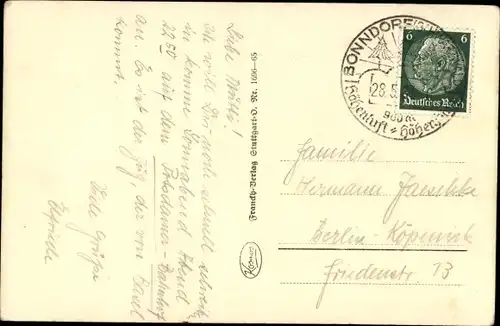 Liebe Mutti!
Ich will Dir noch schnell schreiben
ich komme Sonnabend Abend
22 50 auf dem Potsdamer-Bahnhof
an. Es ist der Zug, der von Basel
kommt.
Viele Grüße
Franckh-Verlag Stuttgart-O. Nr. 1606-65
BONNDORF
28.5.
Höhenluft
6 6
Deutsches Reich
Familie
Hermann Jaeschke
Berlin-Köpenick
Friedenstr. 13